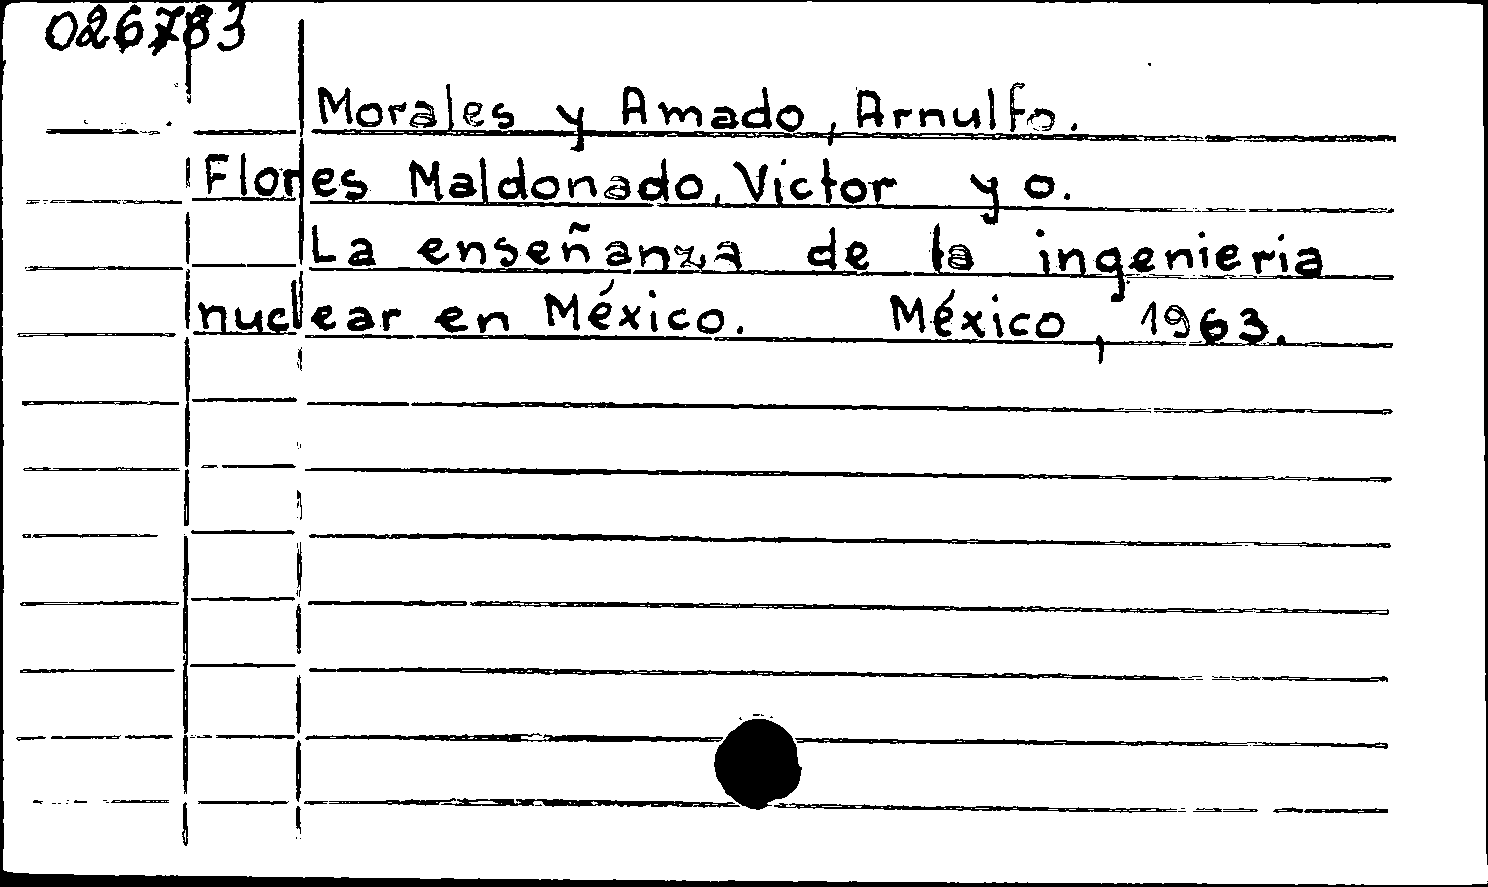 026783
Morales y Amado, Arnulfo.
Flores Maldonado, Victor y o.
La enseñanza de la ingenieria
nuclear en México. México, 1963.